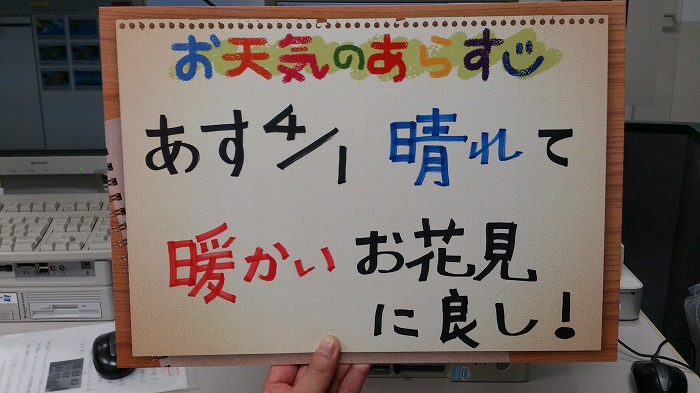 お天気のあらすじ
あす4/1 晴れて
暖かい お花見
に良し!
SHARP